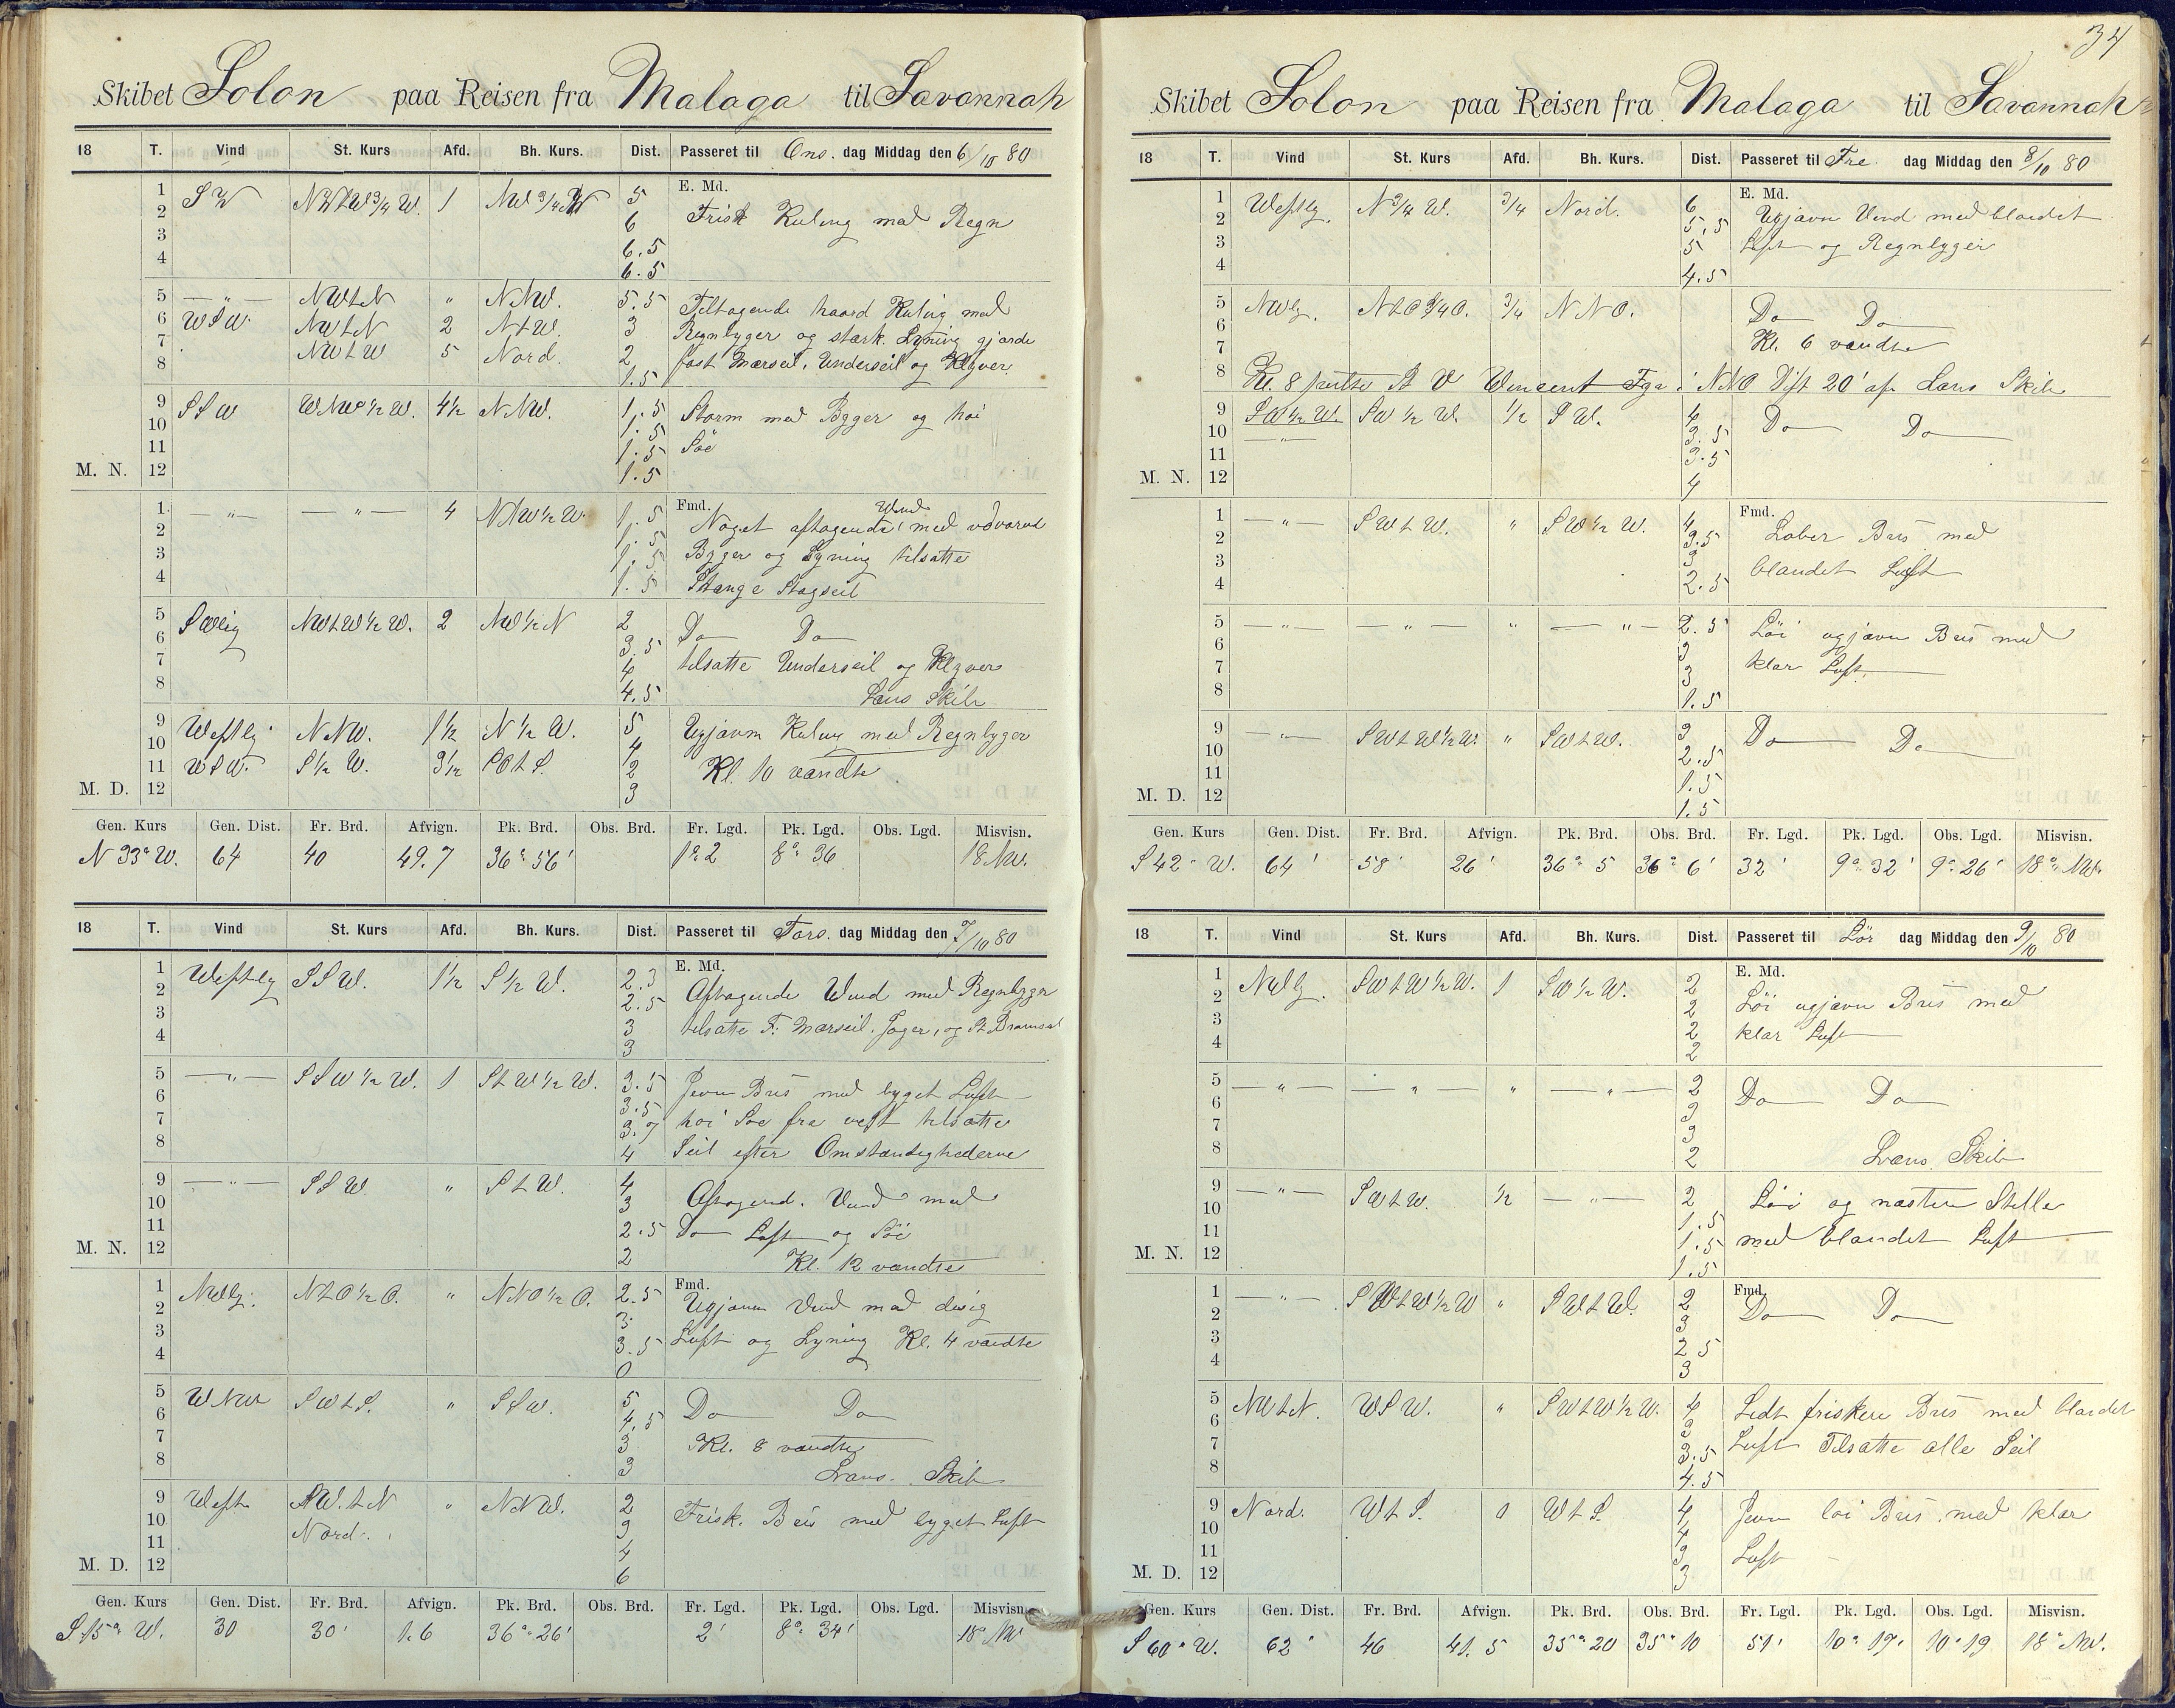 Skibet Solon paa Reisen fra Malaga til Savannah
18 T. Vind St. Kurs Afd. Bh. Kurs. Dist. Passeret til Ons. dag Middag den 6/10 80
E. Md.
1 SW NWtW 3/4 W. 1 NW 3/4 W 5
2 6 Frisk Kuling med Regn
3 6.5
4 6.5
5 — " — NWtN " NNW. 5.5 Tiltagende haard Kuling med
6 WSW. NWtN 2 NtW. 3 Regnbyger og stærk Lyning gjorde
7 NWtW 5 Nord. 2 fast Mærseil, Underseil og Klyver
8 1.5
9 SSW WNW 1/2 W. 4 1/2 NNW. 1.5 Storm med Byger og høi
10 1.5 Söe
11 1.5
M. N. 12 1.5
Fmd.
1 — " — — " — 4 NNW 1/2 W. 1.5 Noget aftagende Vind med vdvarnd
2 1.5
3 1.5 Byger og Lyning tilsatte
4 1.5 Stænge Stagseil
5 SWlig NWtW 1/2 W. 2 NW 1/2 N 2 Do Do
6 3.5
7 4 tilsatte Underseil og Klyver
8 4.5 Læns Skib
9 Westlg NNW. 1 1/2 N 1/2 W. 5 Ugjævn Kuling med Regnbyger
10 4
11 WSW. S 1/2 W. 3 1/2 SOtS. 2 Kl. 10 vændte
M. D. 12 3
Gen. Kurs Gen. Dist. Fr. Brd. Afvign. Pk. Brd. Obs. Brd. Fr. Lgd. Pk. Lgd. Obs. Lgd. Misvisn.
N 33° W. 64 40 49.7 36° 56' 1° 2 8° 36 18 NW.
18 T. Vind St. Kurs Afd. Bh. Kurs. Dist. Passeret til Tors. dag Middag den 7/10 80
E. Md.
1 Westlg SSW. 1 1/2 S 1/2 W. 2.3 Aftagende Vind med Regnbyger
2 2.5
3 3 tilsatte F. Mærseil, Jager, og St. Bramseil
4 3
5 — " — SSW 1/2 W. 1 StW 1/2 W. 3.5 Jevn Bris med byget Luft
6 3.5
7 3.7 høi Söe fra vest tilsatte
8 4 Seil efter Omstændighederne
9 — " — SSW. " StW. 4 Aftagend. Vind med
10 3
11 2.5 Do Luft og Söe
M. N. 12 2 Kl. 12 vændte
Fmd.
1 NWlg. NtO 1/2 O. " NNO 1/2 O. 2.5 Ugjævn Vind med disig
2 3
3 3.5 Luft og Lyning Kl. 4 vændte
4 0
5 WNW SWtS. " SSW. 5 Do Do
6 4.5
7 3 Kl. 8 vændte
8 3 Læns. Skib
9 West NW.tN " NNW. 2 Frisk. Bris med byget Luft
10 Nord. 3
11 4
M. D. 12 6
Gen. Kurs Gen. Dist. Fr. Brd. Afvign. Pk. Brd. Obs. Brd. Fr. Lgd. Pk. Lgd. Obs. Lgd. Misvisn.
S 15° W. 30 30' 1.6 36° 26' 2' 8° 34' 18° NW
34
Skibet Solon paa Reisen fra Malaga til Savannah
18 T. Vind St. Kurs Afd. Bh. Kurs. Dist. Passeret til Fre. dag Middag den 8/10 80
E. Md.
1 Westlg. N 3/4 W. 3/4 Nord. 6 Ugjævn Vind med blandet
2 5.5
3 5 Luft og Regnbyger
4 4.5
5 NWlg. NtO 1/4 O. 3/4 NNO. Do Do
6
7 Kl. 6 vændte
8 Kl. 8 peilte St V Vincent Fyr i NNO Dist 20' af. Læns Skib
9 SW 1/2 W. SW 1/2 W. 1/2 SW. 4 Do Do
10 — " — 3.5
11 3.5
M. N. 12 4
Fmd.
1 — " — SWtW. " SW 1/2 W. 4 Laber Bris med
2 3.5
3 3 blandet Luft
4 2.5
5 — " — — " — " — " — 2.5 Löi ugjævn Bris med
6 3
7 3 klar Luft
8 1.5
9 — " — SWtW 1/2 W. " SWtW. 3 Do Do
10 2.5
11 1.5
M. D. 12 1.5
Gen. Kurs Gen. Dist. Fr. Brd. Afvign. Pk. Brd. Obs. Brd. Fr. Lgd. Pk. Lgd. Obs. Lgd. Misvisn.
S 42° W. 64' 58' 26' 36° 5 36° 6' 32' 9° 32' 9° 26' 18° NW.
18 T. Vind St. Kurs Afd. Bh. Kurs. Dist. Passeret til Lör dag Middag den 9/10 80
E. Md.
1 NWlg. SWtW 1/2 W. 1 SW 1/2 W. 2 Löi ugjævn Bris med
2 2
3 2 klar Luft
4 2
5 — " — — " — " — " — 2 Do Do
6 3
7 3
8 2 Læns. Skib
9 — " — SWtW. 1/2 — " — 2 Löi og næsten Stille
10 1.5
11 1.5 med blandet Luft
M. N. 12 1.5
Fmd.
1 — " — SWtW 1/2 W " SWtW. 2 Do Do
2 3
3 2 5
4 3
5 NWtN. WSW. " SWtW 1/2 W. 4 Lidt friskere Bris med blandet
6 3
7 3.5 Luft Tilsatte alle Seil
8 4.5
9 Nord. WtS. 0 WtS. 4 Jevn löi Bris med klar
10 4
11 3 Luft
M. D. 12 3
Gen. Kurs Gen. Dist. Fr. Brd. Afvign. Pk. Brd. Obs. Brd. Fr. Lgd. Pk. Lgd. Obs. Lgd. Misvisn.
S 60° W. 62' 46 41.5 35° 20 35° 10 51' 10° 17' 10° 19 18° NW.